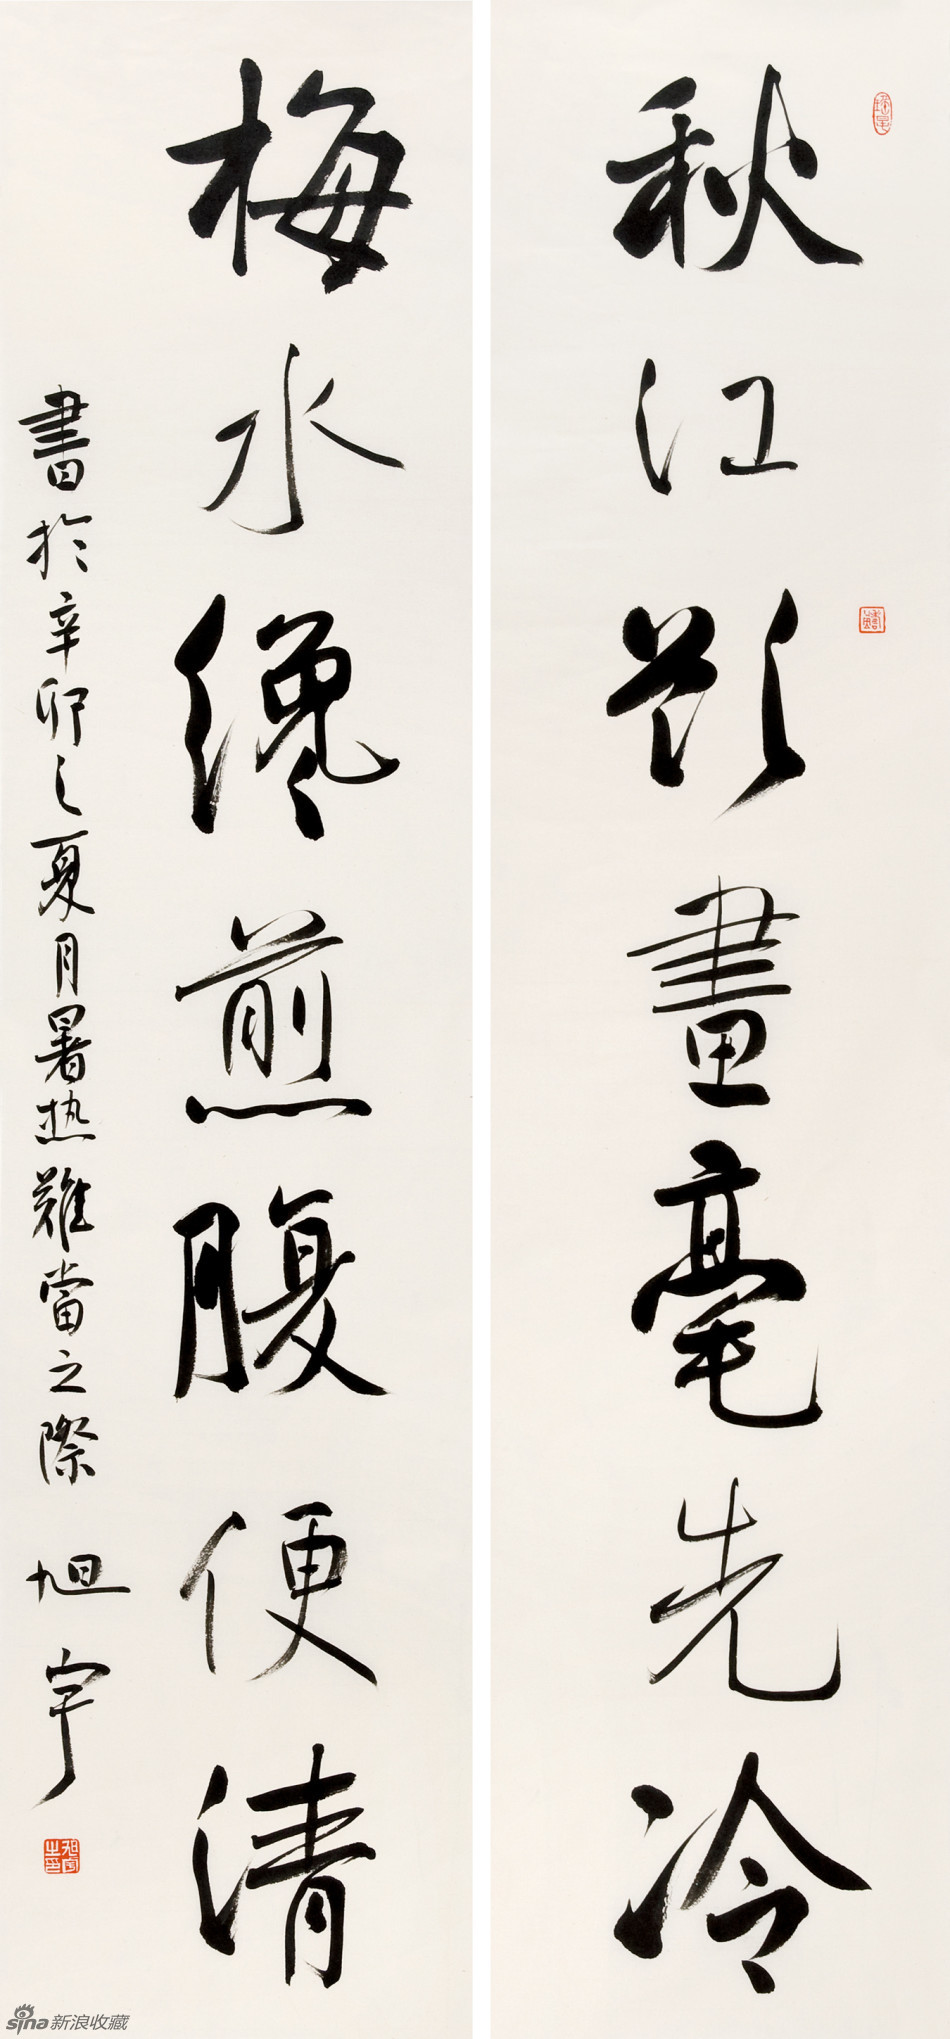 秋江欲畫毫先冷
梅水纔煎腹便清
書於辛卯之夏月暑热難當之際 旭宇
旭宇之印
sina新浪收藏